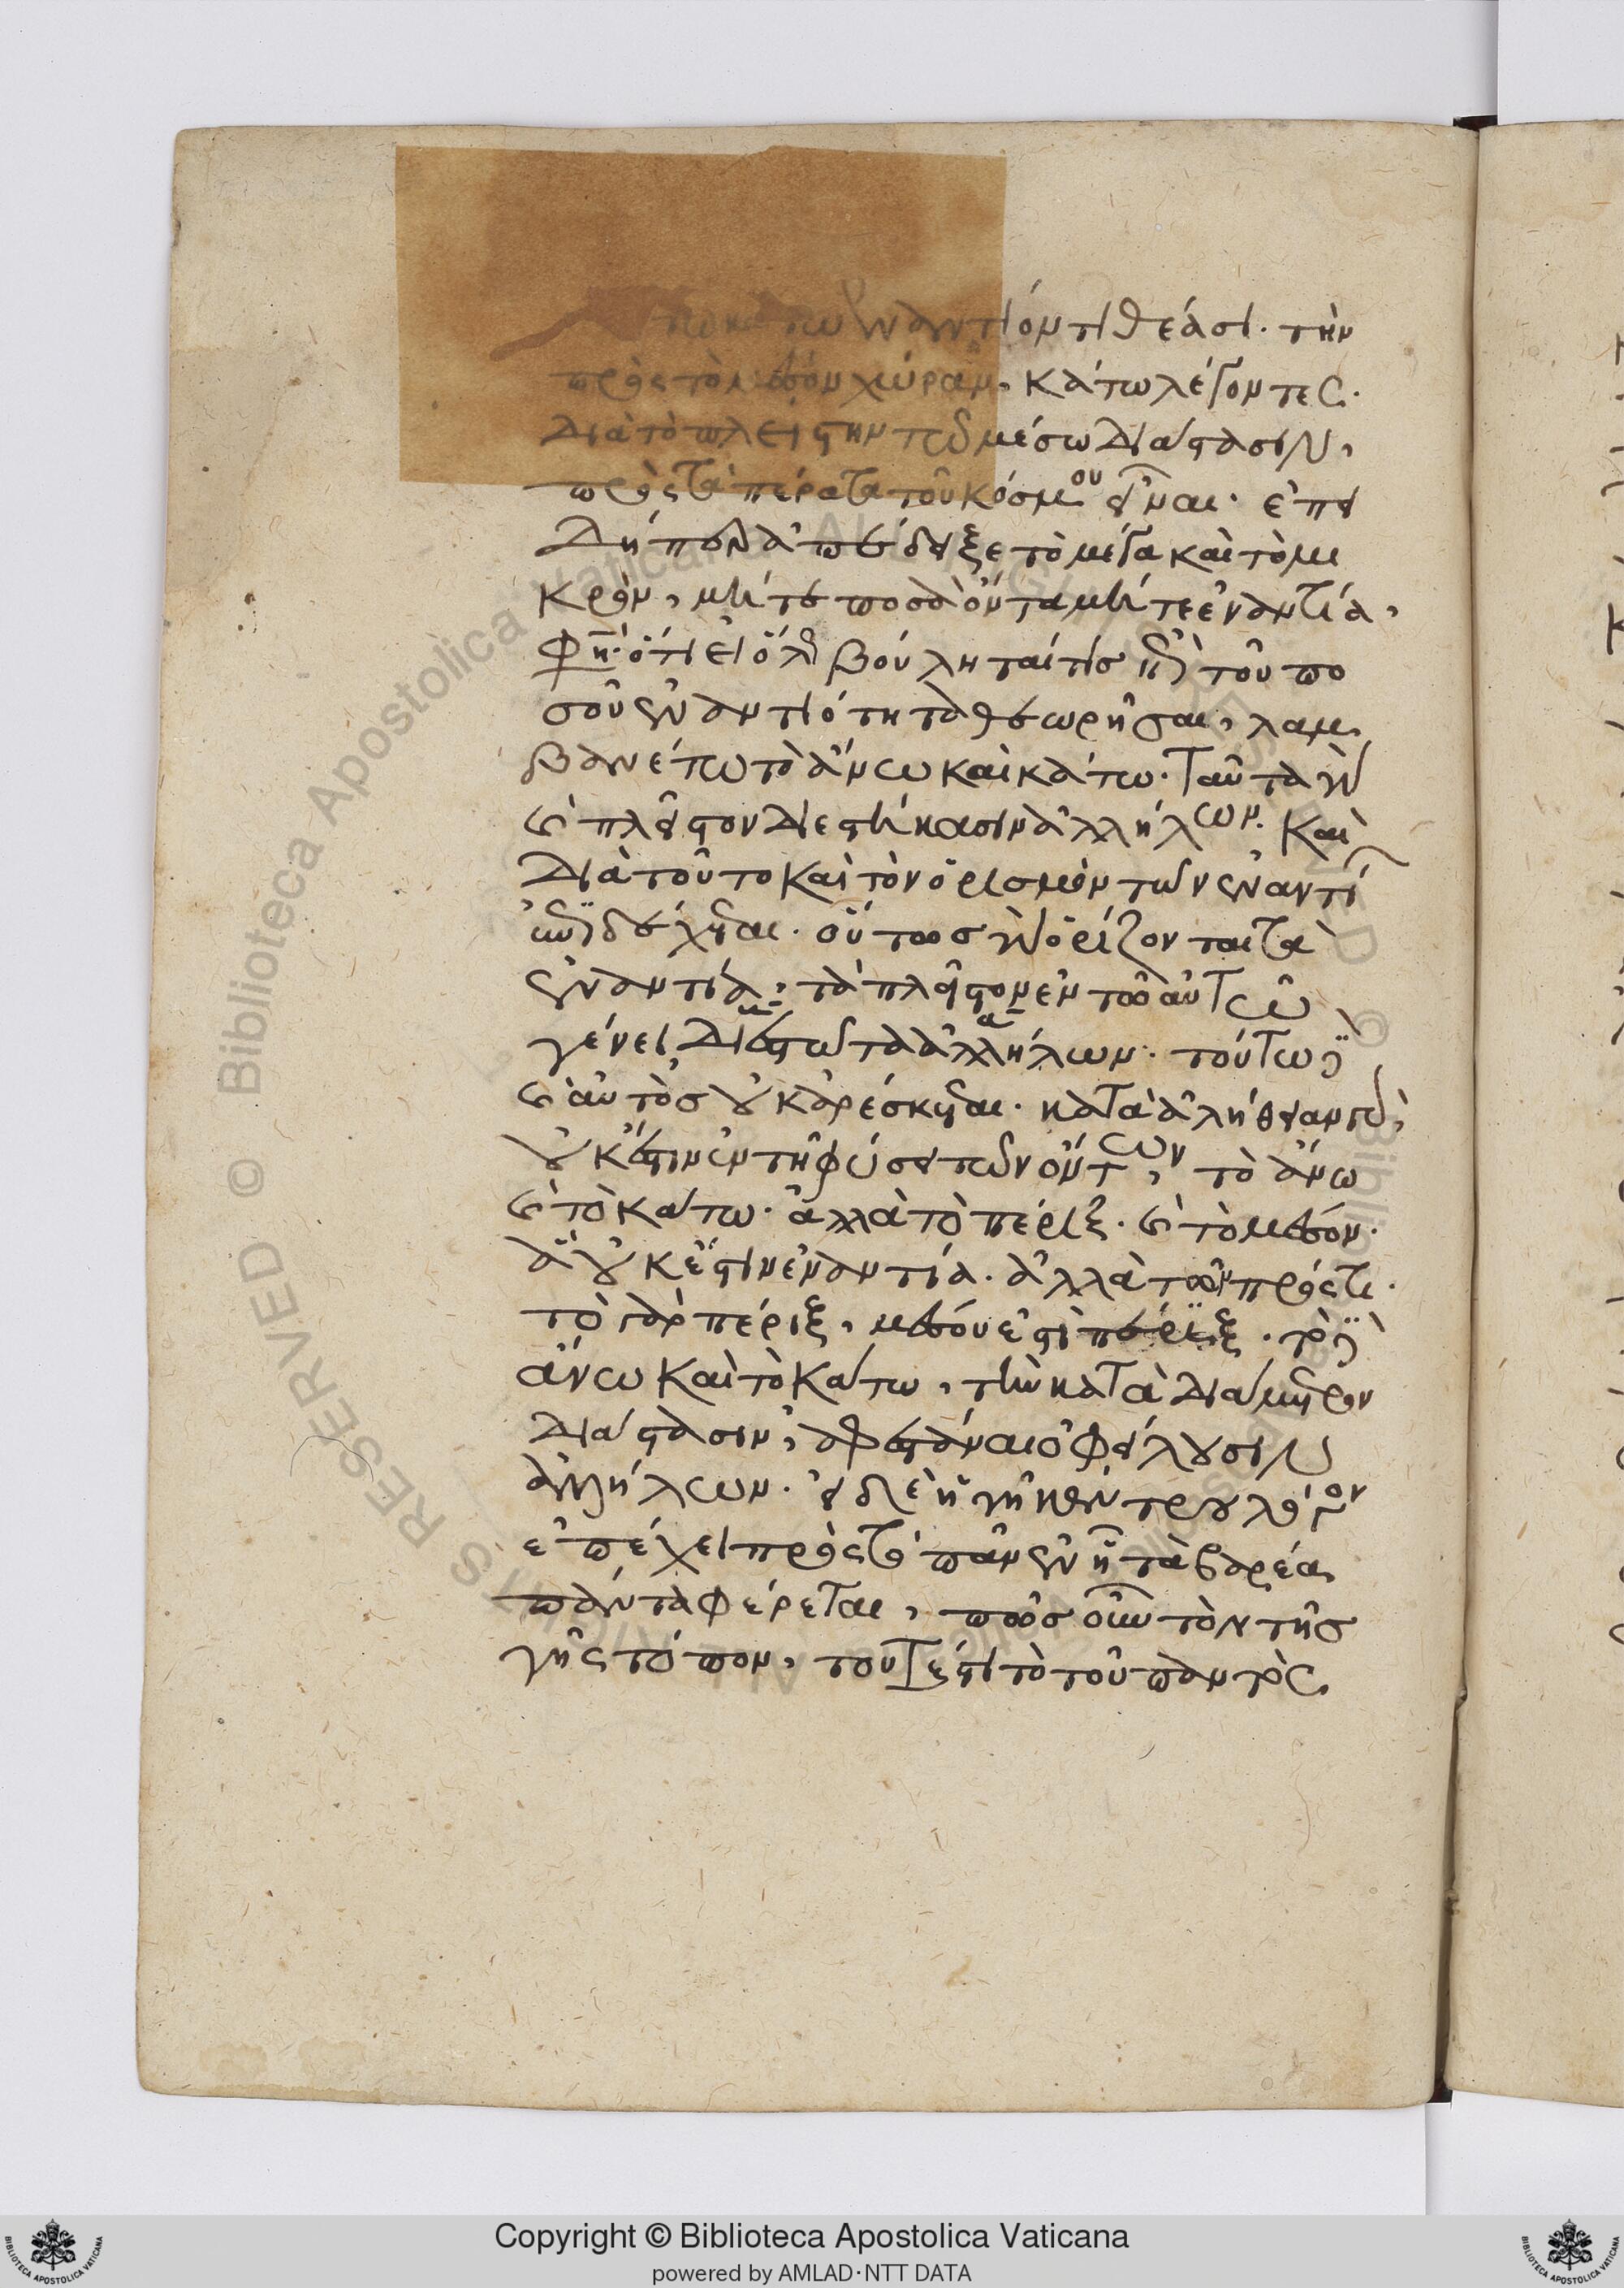 τῶ κάτω ἐναντίον τιθέασι. τὴν
πρὸς τὸ μέσον χώραν, κάτω λέγοντες.
διὰ τὸ πλείστην τῶ μέσω διάστασιν,
πρὸς τὰ πέρατα τοῦ κόσμου εἶναι. ἐπει
δήπερ ἀπέδειξε τὸ μέγα καὶ τὸ μι
κρὸν, μήτε ποσὰ ὄντα μήτε ἐναντία,
φη. ὅτι εἰ ὅλως βούληταί τις ἐπὶ τοῦ πο
σοῦ ἐναντιότητα θεωρῆσαι, λαμ
βανέτω τὸ ἄνω καὶ κάτω. ταῦτα γὰρ
καὶ πλεῖστον διεστήκασιν ἀλλήλων. καὶ
διὰ τοῦτο καὶ τὸν ὁρισμὸν τῶν ἐναντί
ων δέχεται. οὕτως γὰρ ὁρίζονται τὰ
ἐναντία, τὰ πλεῖστον ἐν τῶ αὐτῶ
γένει διεστῶτα ἀλλήλων. τούτω δὲ
καὶ αὐτὸς οὐκ ἀρέσκεται. κατὰ ἀλήθειαν γὰρ,
οὐκ ἔστιν ἐν τῆ φύσει τῶν ὄντων, τὸ ἄνω
καὶ τὸ κάτω. ἀλλὰ τὸ πέριξ. καὶ τὸ μέσον.
ἃ οὐκ ἔστιν ἐναντία. ἀλλὰ τῶν πρός τι.
τὸ γὰρ πέριξ, μέσου ἐστὶ πέριξ. τὸ δὲ
ἄνω καὶ τὸ κάτω, τὴν κατὰ διάμετρον
διάστασιν, ἀφεστάναι ὀφείλουσιν
ἀλλήλων. εἰ δὲ ἡ γῆ κέντρου λόγον
ἐπέχει πρὸς τὸ πᾶν ἐν ἧ τὰ βαρέα
πάντα φέρεται, πῶς οἷόν τε τὸν τῆς
γῆς τόπον, τουτέστι τὸ τοῦ παντὸς
Copyright © Biblioteca Apostolica Vaticana
powered by AMLAD·NTT DATA